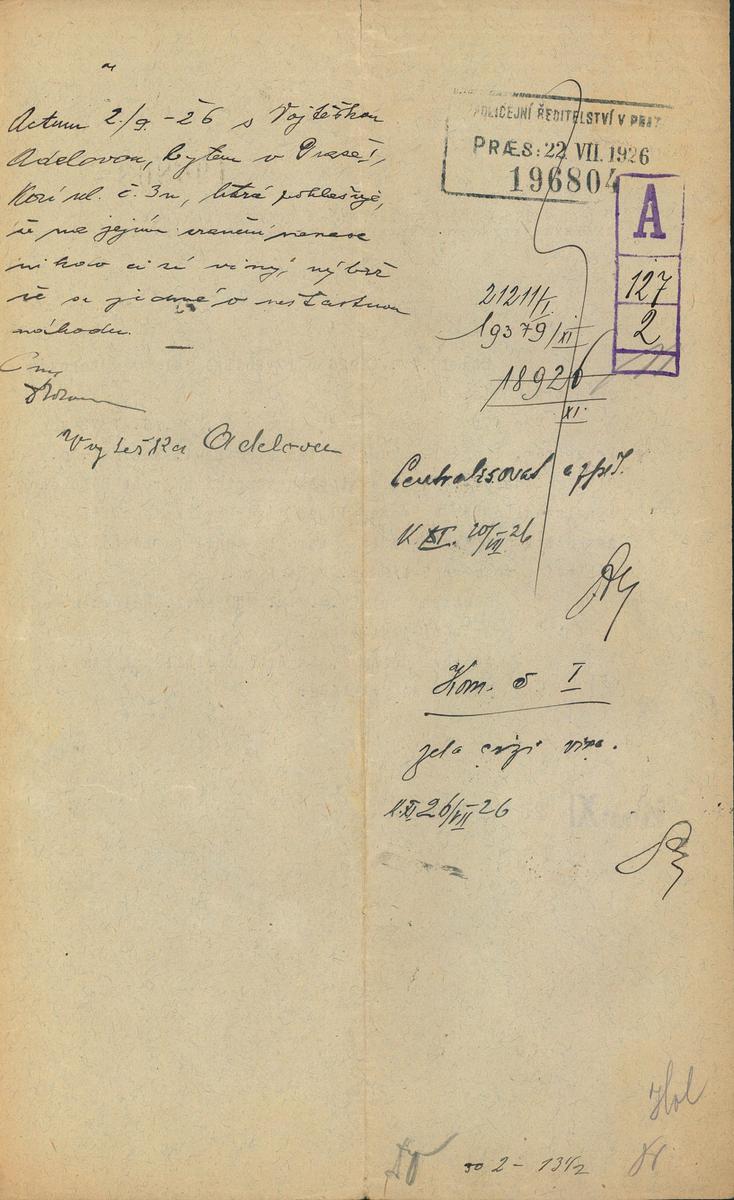 Actum 2./9. -26 s Vojtěškou
Adelovou, bytem v Praze I,
Kozí ul. č. 3n, která prohlašuje,
že na jejím zranění nenese
nikdo cizí viny, nýbrž
že se jedná o nešťastnou
náhodu.
Vojteška Adelova
POLICEJNÍ ŘEDITELSTVÍ V PRAZE
PRÆS: 22. VII. 1926
196804
A
127
2
21211/I.
19379/XI
18920
XI.
Centralisovat a zpět.
K XI. 20/VII 26
Kom. o I
zda cizí vina.
K.XI. 26/VII 26
Hol
30 2 - 13 1/2